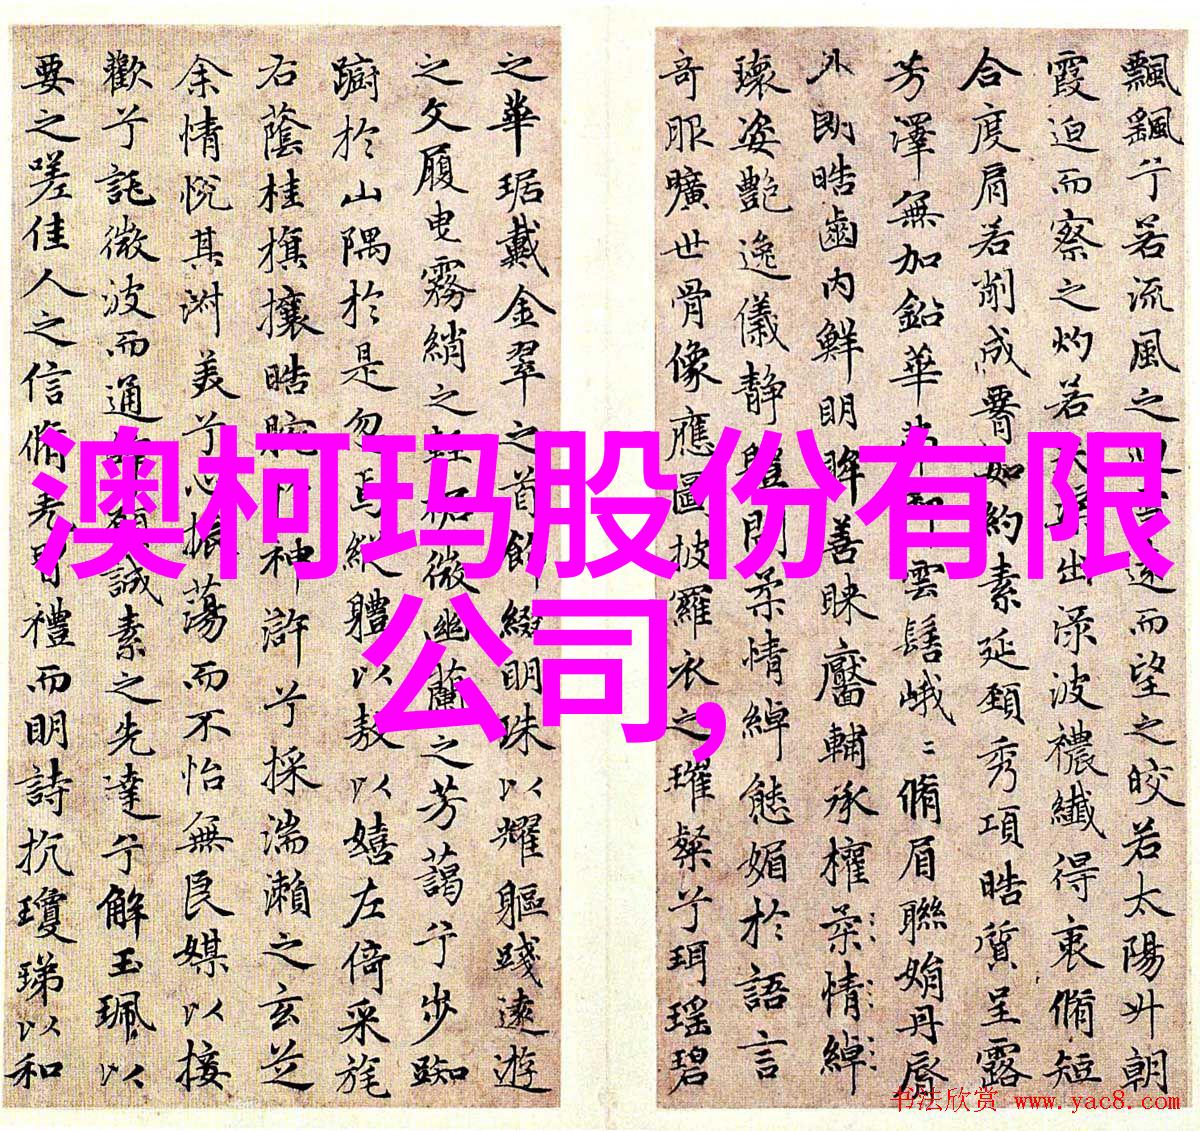 飄飖兮若流風之遠而望之皎若太陽升朝
霞迫而察之灼若出渌波禯纖得衷脩短
合度肩若削成如約素延頸秀項皓質呈露
芳澤無加鉛華雲髻峨〻脩眉聯娟丹脣
外朗皓齒内鮮明眸善睞靨輔承權柔情綽
瓌姿艷逸儀靜體閑柔情綽態媚於語言
奇服曠世骨像應圖披羅衣之璀粲兮珥瑶碧
之華琚戴金翠之首飾綴明珠以耀軀踐遠遊
之文履曳霧綃之輕裾微幽蘭之芳藹兮步踟
躕於山隅於是忽焉縱體以敖以嬉左倚采旄
右蔭桂旗攘皓腕神滸兮採湍瀨之玄芝
余情悅其淑美兮心振蕩而不怡無良媒以接
歡兮託微波而通願誠素之先達兮解玉珮以
要之嗟佳人之信脩習禮而明詩抗瓊珶以和
澳柯玛股份有限
公司,
书法欣赏 www.yac8.com